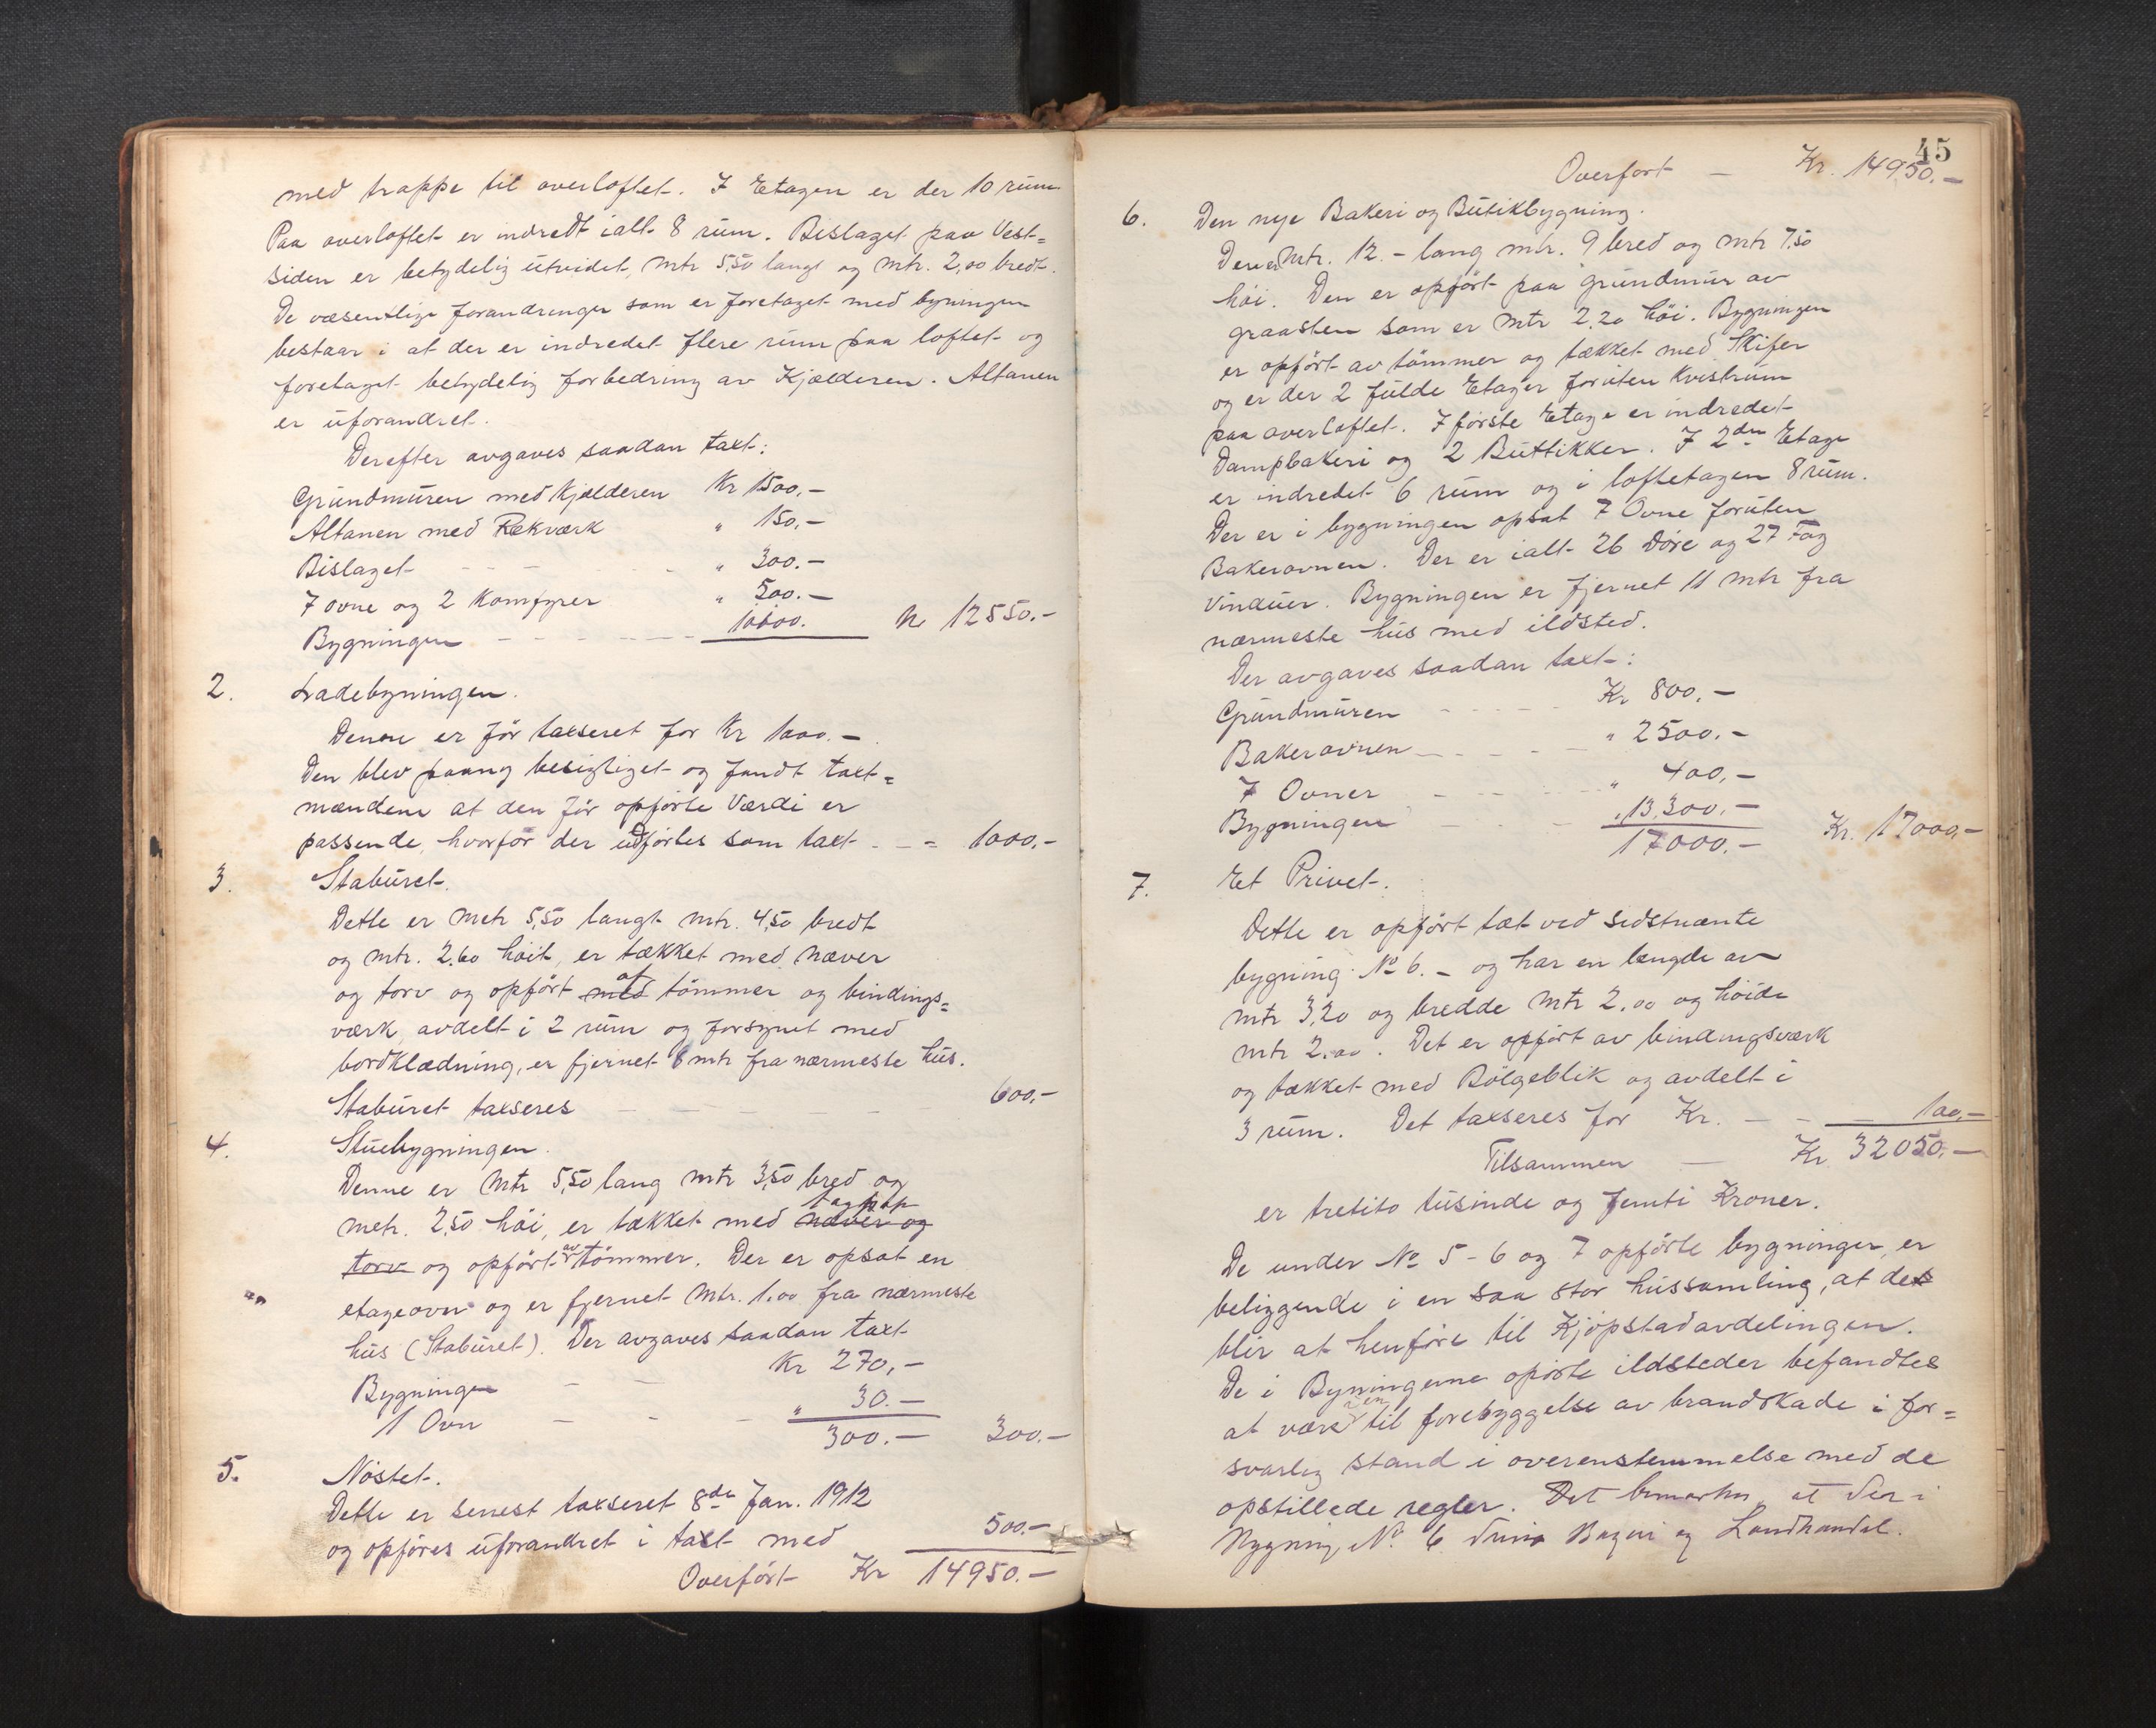 med trappe til overloftet. I Etagen er der 10 rum
Paa overloftet er indredt ialt 8 rum. Bislaget paa Vest=
siden er betydelig utvidet, mtr 5,50 langt og mtr. 2,00 bredt.
De væsentlige forandringer som er foretaget med byningen
bestaar i at der er indredet flere rum paa loftet og
foretaget betydelig forbedring av Kjælderen. Altanen
er uforandret.
Derefter avgaves saadan taxt:
Grundmuren med kjælderen Kr 1500,-
Altanen med Rekværk " 150,-
Bislaget - - - " 300.-
7 ovne og 2 Komfyrer " 500.-
Bygningen - - - 10100. Kr 12550.-
2. Ladebyningen.
Denne er før taxseret for Kr 1000.-
Den blev paany besigtiget og fandt taxt=
mændene at den før opførte Værdi er
passende, hvorfor der udførtes som taxt - - = 1000,-
3. Staburet.
Dette er metr 5,50 langt mtr. 4,50 bredt
og mtr. 2.60 høit, er tækket med næver
og torv og opført med af tømmer og bindings=
værk, avdelt i 2 rum og forsynet med
bordklædning, er fjernet 8 mtr fra nærmeste hus.
Staburet taxseres - - - 600,-
4. Stuebygningen.
Denne er Mtr 5,50 lang mtr 3,50 bred og
tagpap
metr. 2,50 høi, er tækket med næver og
torv og opført av tømmer. Der er opsat en
etageovn og er fjernet Mtr. 1.00 fra nærmeste
hus (Staburet). Der avgaves saadan taxt
Bygningen - - Kr 270,-
1 Ovn - - - " 30.-
300.- 300.-
5. Nøstet.
Dette er senest taxseret 8de Jan. 1912
og opføres uforandret i taxt med 500.-
Overført Kr 14950.-
45
Overført - Kr. 14950.-
6. Den nye Bakeri og Butikbygning.
Den er Mtr. 12.- lang mtr. 9 bred og mtr 7,50
høi. Den er opført paa grundmur av
graasten som er mtr 2,20 høi. Bygningen
er opført av tømmer og tækket med Skifer
og er der 2 fulde Etager foruten Kvistrum
paa overloftet. I første Etage er indredet
Dampbakeri og 2 Buttikker. I 2den Etage
er indredet 6 rum og i loftetagen 8 rum.
Der er i bygningen opsat 7 Ovne foruten
Bakerovnen. Der er ialt 26 Døre og 27 Fag
Vinduer. Bygningen er fjernet 11 mtr fra
nærmeste hus med ildsted.
Der avgaves saadan taxt:
Grundmuren - - - Kr 800,-
Bakerovnen - - - " 2500.-
7 Ovner - - - " 400,-
Bygningen - - - " 13,300.-
17000.- Kr. 17000,-
7. Et Privet.
Dette er opført tæt ved sidstnævnte
bygning No 6.- og har en længde av
mtr 3,20 og bredde mtr 2,00 og høide
mtr 2,00. Det er opført av bindingsværk
og tækket med Bølgeblik og avdelt i
3 rum. Det taxseres for Kr. - - - 100,-
Tilsammen - Kr 32050,-
er tretito tusinde og femti Kroner.
De under No 5-6 og 7 opførte bygninger, er
beliggende i en saa stor hussamling, at det
blir at henføre til Kjøpstadavdelingen.
De i Byningerne opførte ildsteder befandtes
at være til forebyggelse av brandskade i for=
svarlig stand i overenstemmelse med de
opstillede regler. Det bemærkes at der i
Bygning No. 6 drives Bageri og Landhandel.